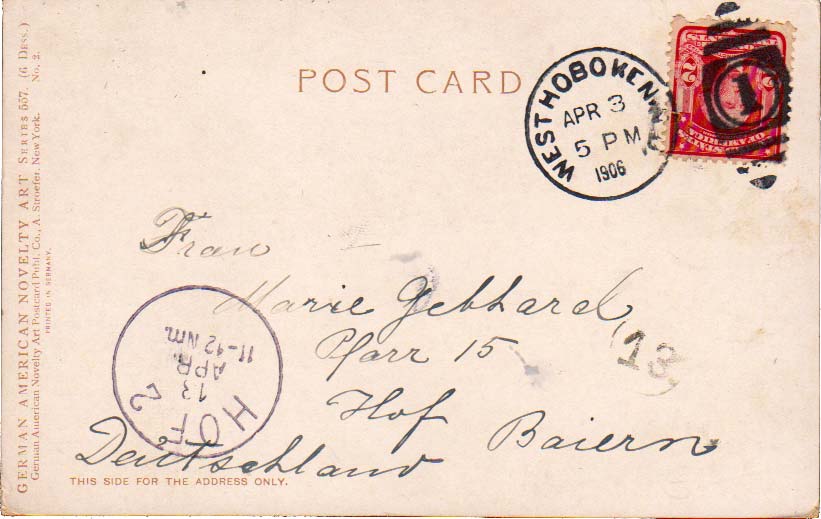 GERMAN AMERICAN NOVELTY ART SERIES 557. (6 DESS.)
German American Novelty Art Postcard Publ. Co., A. Stroefer, New York. No. 2.
PRINTED IN GERMANY.
POST CARD
WEST HOBOKEN, N.J.
APR 3
5 PM
1906
1
2 2
Frau
Marie Gebhard
Pfarr 15
Hof Baiern
Deutschland
13
HOF 2
13
APR.
11-12 Nm.
THIS SIDE FOR THE ADDRESS ONLY.